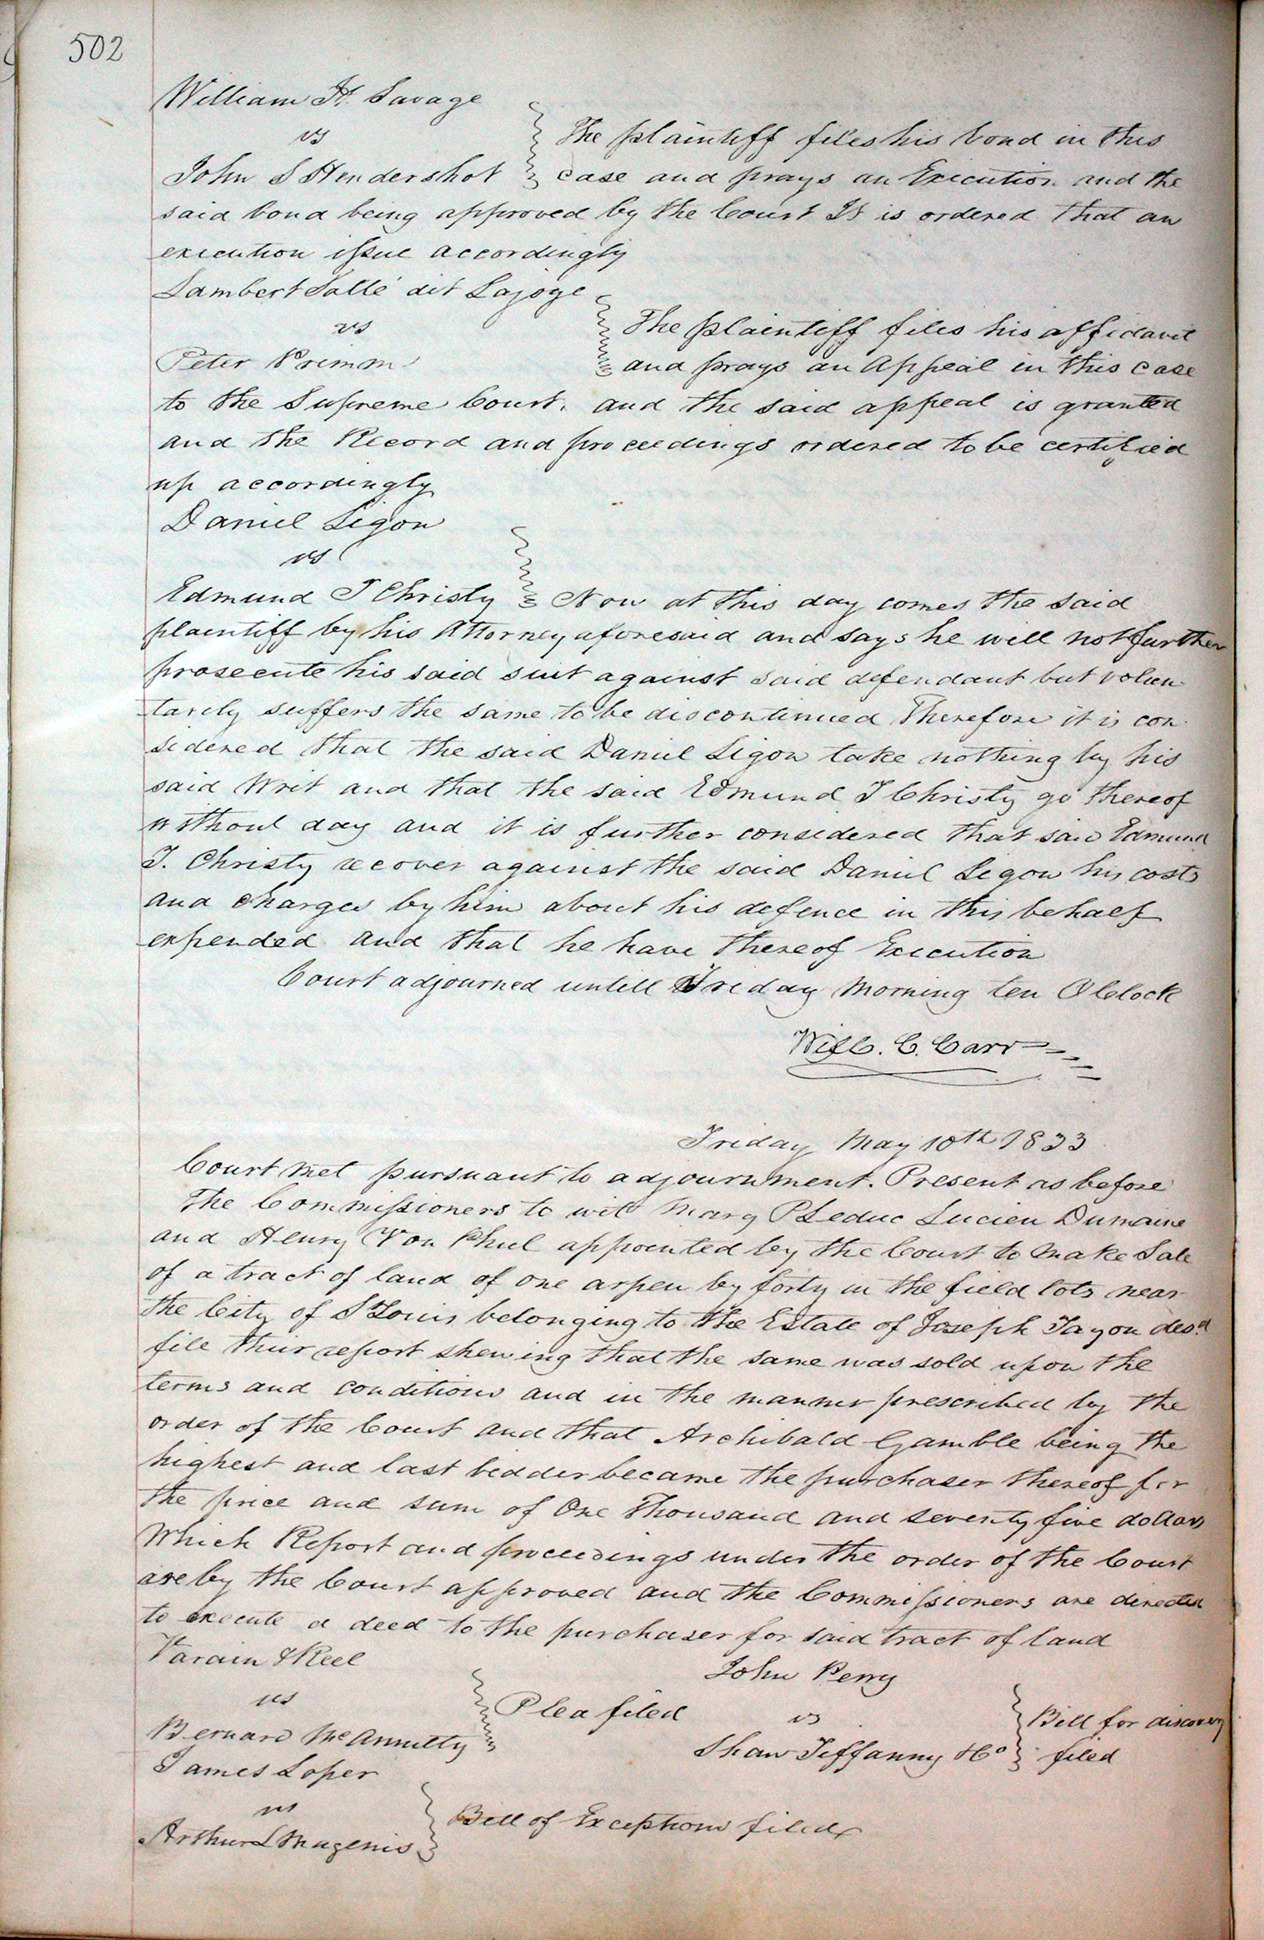 502
William H. Savage
vs
The plaintiff files his bond in this
John S Hendershot case and prays an Execution and the
said bond being approved by the Court It is ordered that an
execution issue accordingly
Lambert Sallé dit Lajoye
vs
The plaintiff files his affidavit
Peter Primm and prays an Appeal in this case
to the Supreme Court. and the said appeal is granted
and the Record and proceedings ordered to be certified
up accordingly
Daniel Ligon
vs
Edmund T Christy Now at this day comes the said
plaintiff by his Attorney aforesaid and says he will not further
prosecute his said suit against said defendant but volun
tarily suffers the same to be discontinued Therefore it is con
sidered that the said Daniel Ligon take nothing by his
said Writ and that the said Edmund T Christy go thereof
without day and it is further considered that said Edmund
T. Christy recover against the said Daniel Ligon his costs
and charges by him about his defence in this behalf
expended and that he have thereof Execution
Court adjourned untill Friday Morning ten OClock
Will. C. Carr
Friday May 10th 1833
Court met pursuant to adjournment. Present as before
The Commissioners to wit Mary P Leduc Lucien Dumaine
and Henry Von Phul appointed by the Court to make Sale
of a tract of land of one arpen by forty in the field lots near
the City of St Louis belonging to the Estate of Joseph Tayon desd
file their report shewing that the same was sold upon the
terms and conditions and in the manner prescribed by the
order of the Court and that Archibald Gamble being the
highest and last bidder became the purchaser thereof for
the price and sum of One Thousand and seventy five dollars
Which Report and proceedings under the order of the Court
are by the Court approved and the Commissioners are directed
to execute a deed to the purchaser for said tract of land
Varain & Reel
vs
Plea filed
Bernard McAnnulty
John Perry
vs
Bill for discovery
Shaw Tiffanny & Co filed
James Loper
vs
Bill of Exceptions filed
Arthur L Magenis